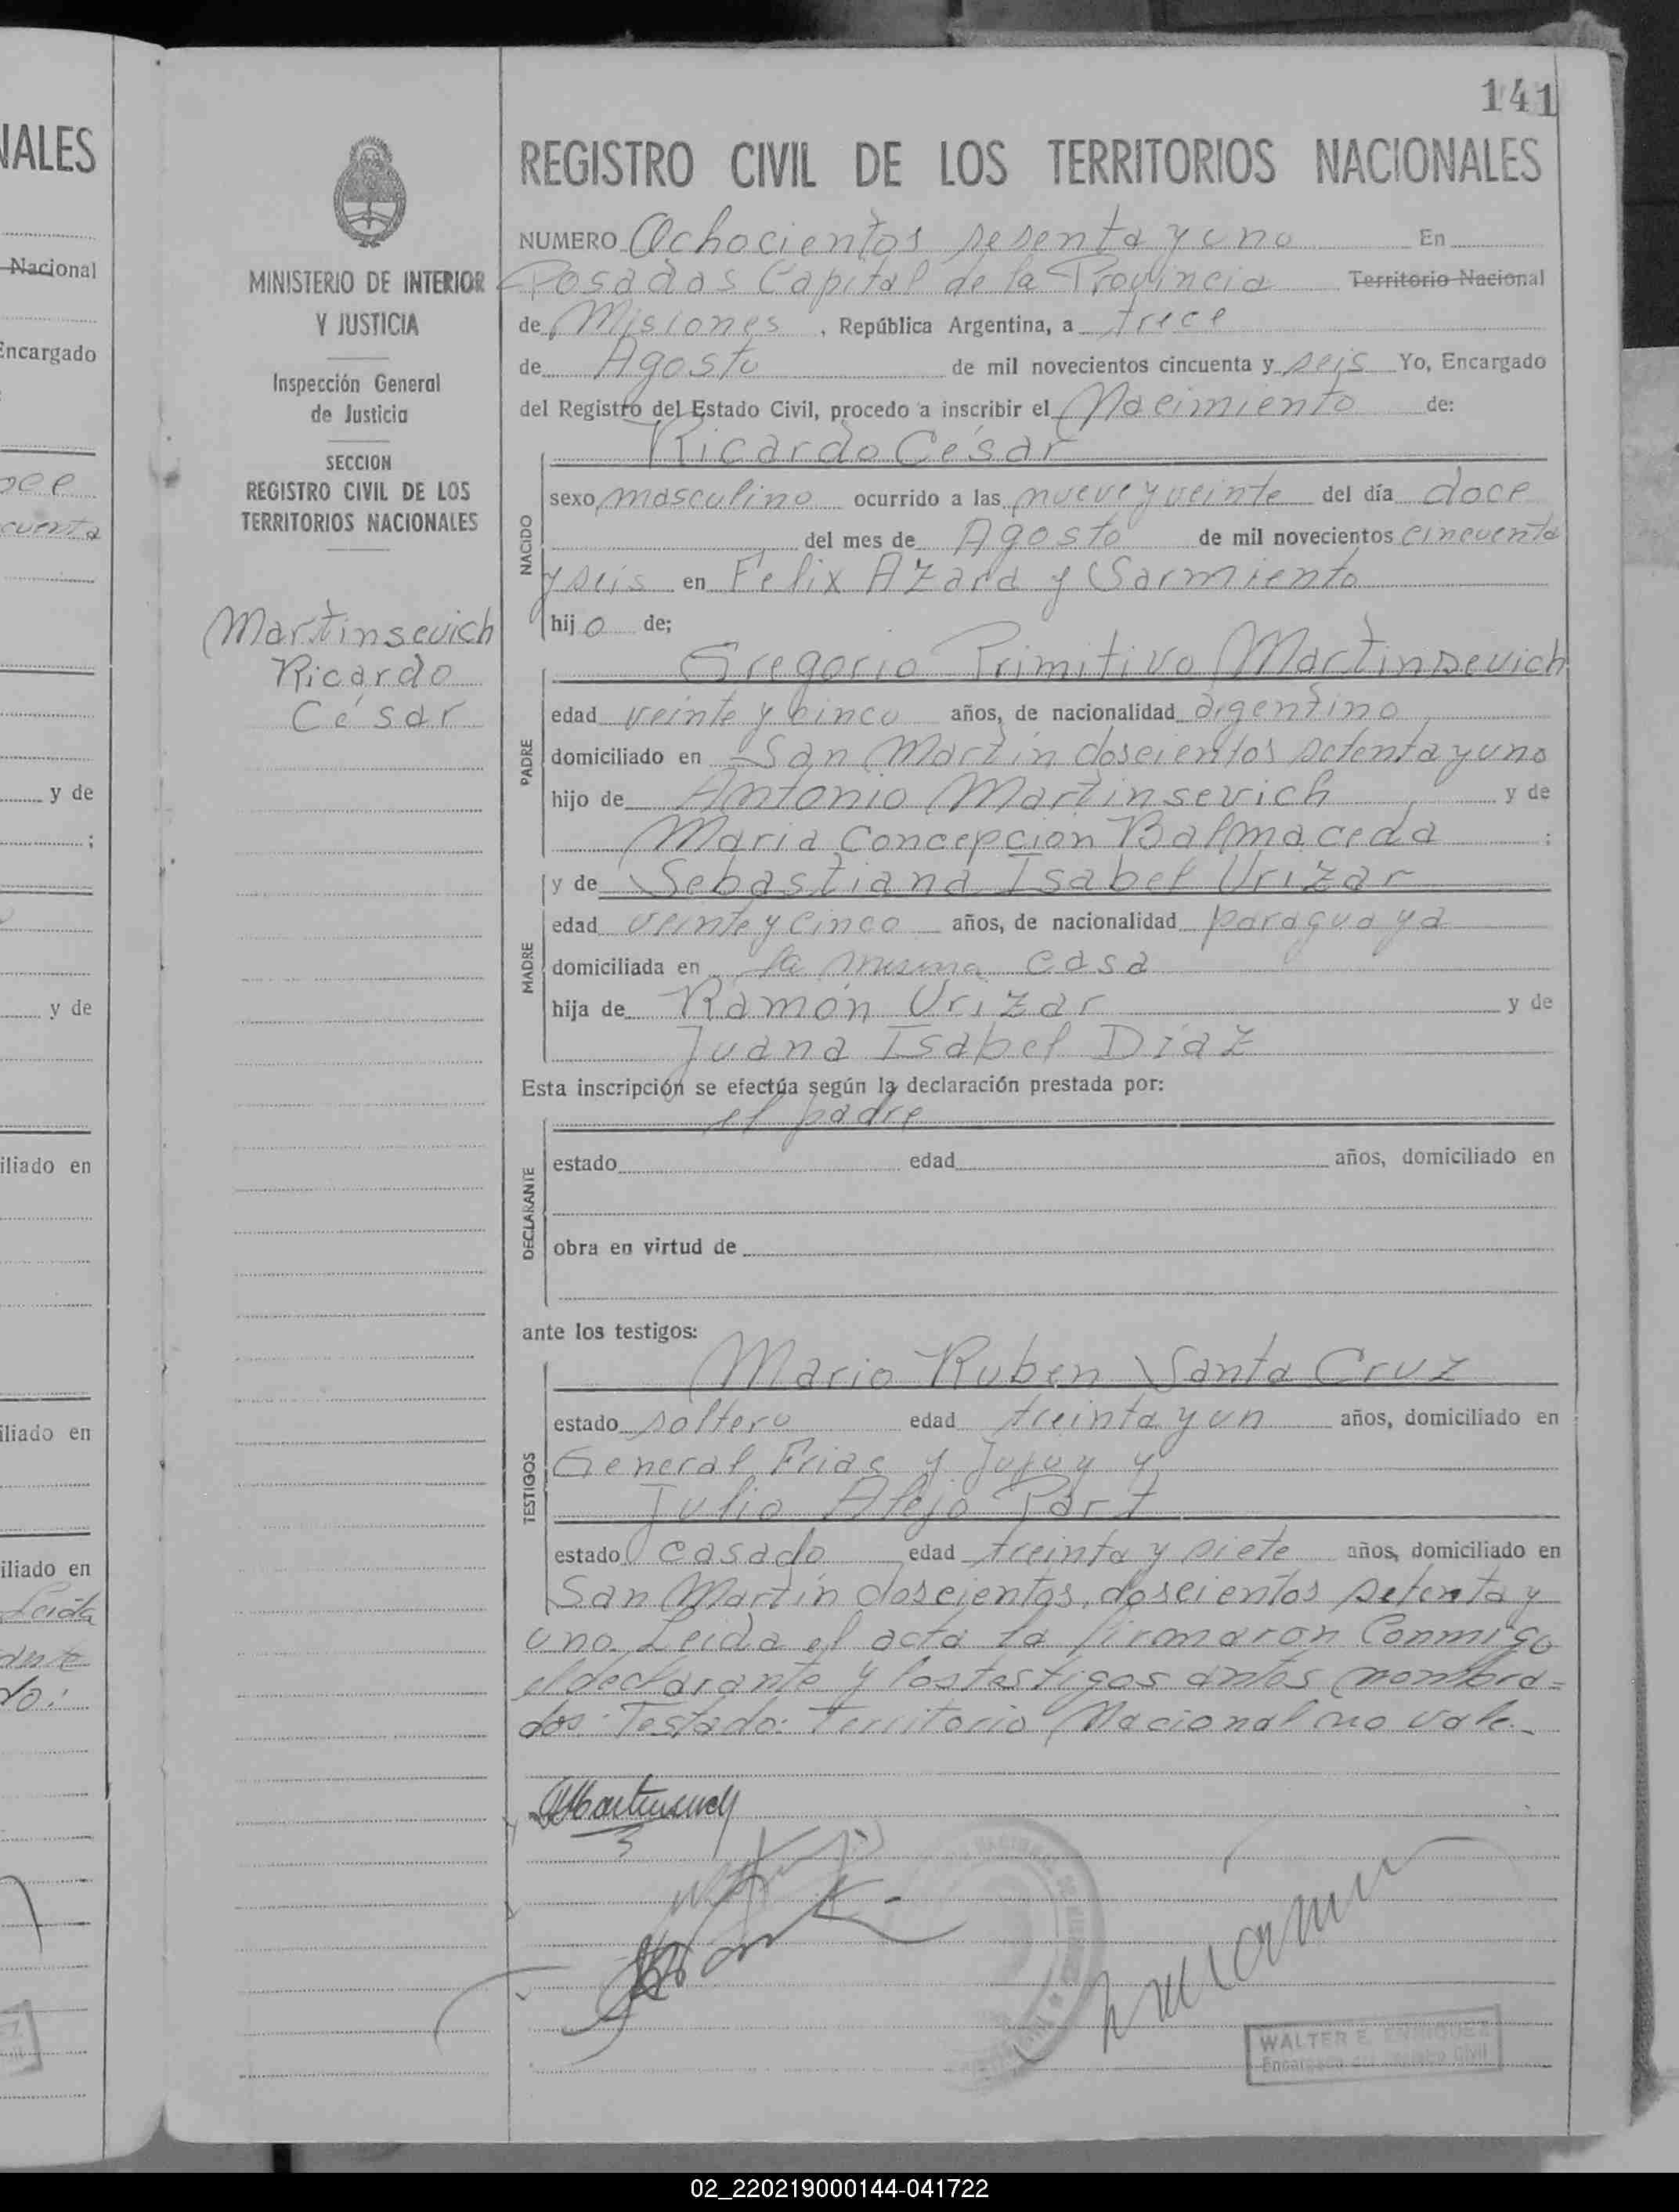 141
REGISTRO CIVIL DE LOS TERRITORIOS NACIONALES
NUMERO Ochocientos sesenta y uno En
Posadas Capital de la Provincia Territorio Nacional
de Misiones, República Argentina, a trece
de Agosto de mil novecientos cincuenta y seis Yo, Encargado
del Registro del Estado Civil, procedo a inscribir el Nacimiento de:
Ricardo César
NACIDO
sexo masculino ocurrido a las nueve y veinte del día doce
del mes de Agosto de mil novecientos cincuenta
y seis en Felix Azara y Sarmiento
hijo de;
PADRE
Gregorio Primitivo Martinsevich
edad veinte y cinco años, de nacionalidad argentino
domiciliado en San Martín doscientos setenta y uno
hijo de Antonio Martinsevich y de
María Concepción Balmaceda ;
y de Sebastiana Isabel Urizar
MADRE
edad veinte y cinco años, de nacionalidad paraguaya
domiciliada en la misma casa
hija de Ramón Urizar y de
Juana Isabel Díaz
Esta inscripción se efectúa según la declaración prestada por:
el padre
DECLARANTE
estado edad años, domiciliado en
obra en virtud de
ante los testigos:
TESTIGOS
Mario Ruben Santa Cruz
estado soltero edad treinta y un años, domiciliado en
General Frias y Jujuy y
Julio Alejo Part
estado casado edad treinta y siete años, domiciliado en
San Martín doscientos, doscientos setenta y
uno. Leida el acta la firmaron Conmigo
el declarante y los testigos antes nombra=
dos: Testado: Territorio Nacional no vale.
WALTER E. ENRIQUEZ
Encargado del Registro Civil
MINISTERIO DE INTERIOR
Y JUSTICIA
Inspección General
de Justicia
SECCION
REGISTRO CIVIL DE LOS
TERRITORIOS NACIONALES
Martinsevich
Ricardo
César
NALES
Nacional
Encargado
cuenta
y de
;
y de
iliado en
iliado en
iliado en
Leida
02_220219000144-041722